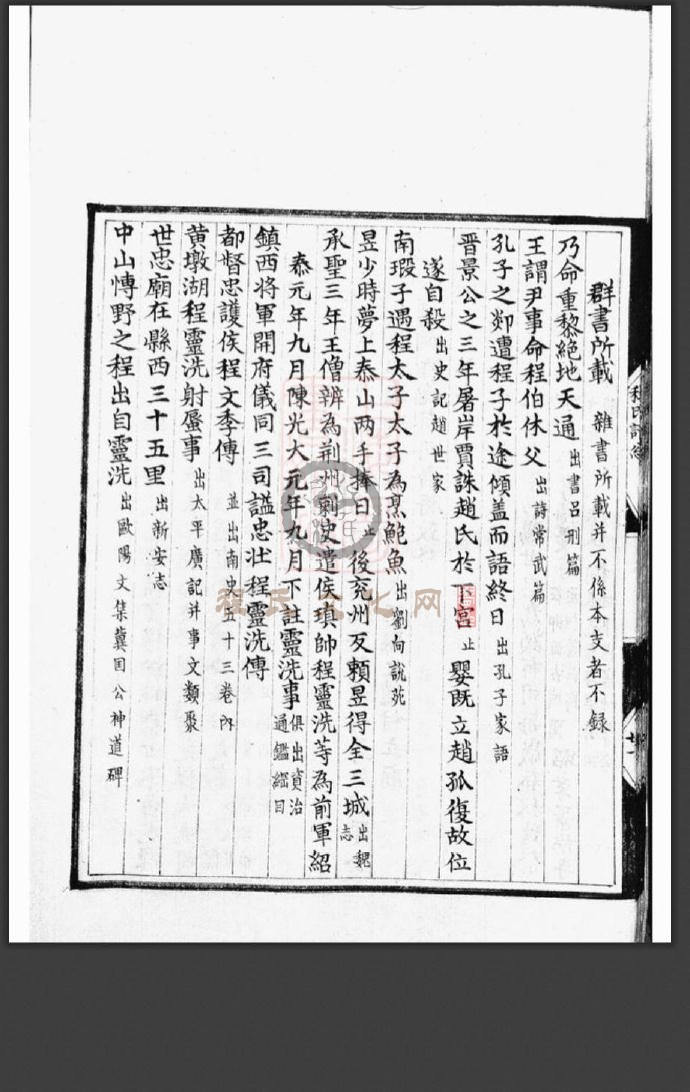 群書所載 雜書所載并不係本支者不録
乃命重黎絶地天通 出書吕刑篇
王謂尹事命程伯休父 出詩常武篇
孔子之郯遭程子於途傾盖而語終日 出孔子家語
晋景公之三年屠岸賈誅趙氏於下宮 止 嬰既立趙孤復故位
遂自殺 出史記趙世家
南瑕子遇程太子太子為烹鮑魚 出劉向說苑
昱少時夢上泰山两手捧日 止 後兖州反賴昱得全三城 出魏志
承聖三年王僧辨為荆州刺史遣侯瑱帥程靈洗等為前軍紹
泰元年九月陳光大元年九月下註靈洗事 俱出資治通鑑綱目
鎮西将軍開府儀同三司謚忠壮程靈洗傳
都督忠護侯程文季傳 並出南史五十三卷內
黄墩湖程靈洗射蜃事 出太平廣記并事文類聚
世忠廟在縣西三十五里 出新安志
中山愽野之程出自靈洗 出歐陽文集冀国公神道碑
程氏文化网